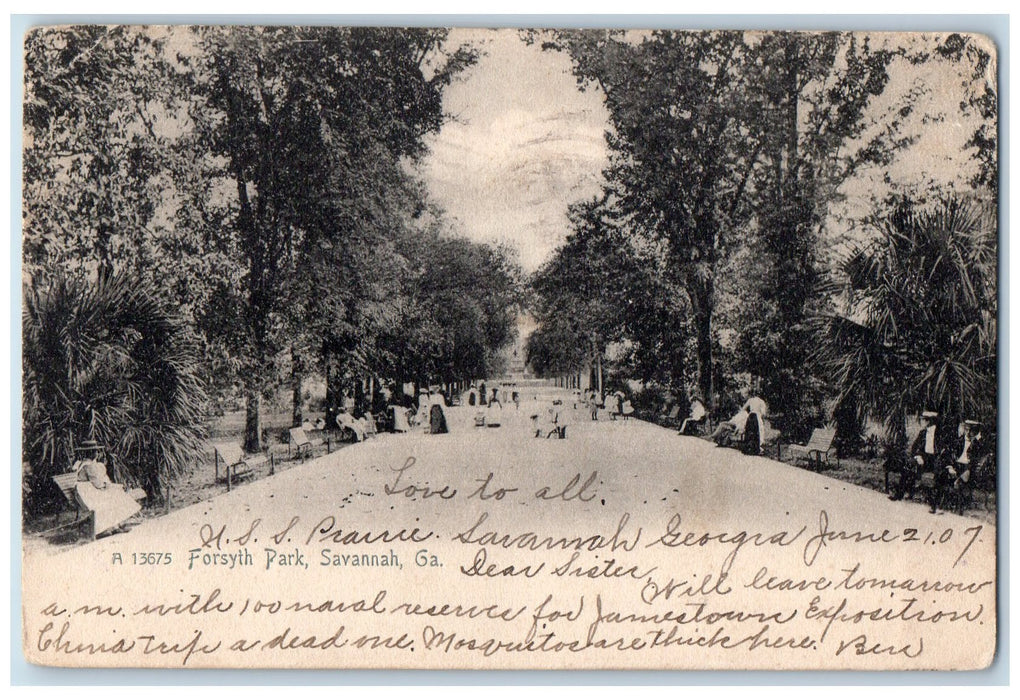 Love to all.
U.S.S. Prairie. Savannah Georgia June 2, 07.
A 13675 Forsyth Park, Savannah, Ga.
Dear Sister,
Will leave tomarrow
a.m. with 100 naval reserves for Jamestown Exposition.
China trip a dead one. Mosquetos are thick here. Ben